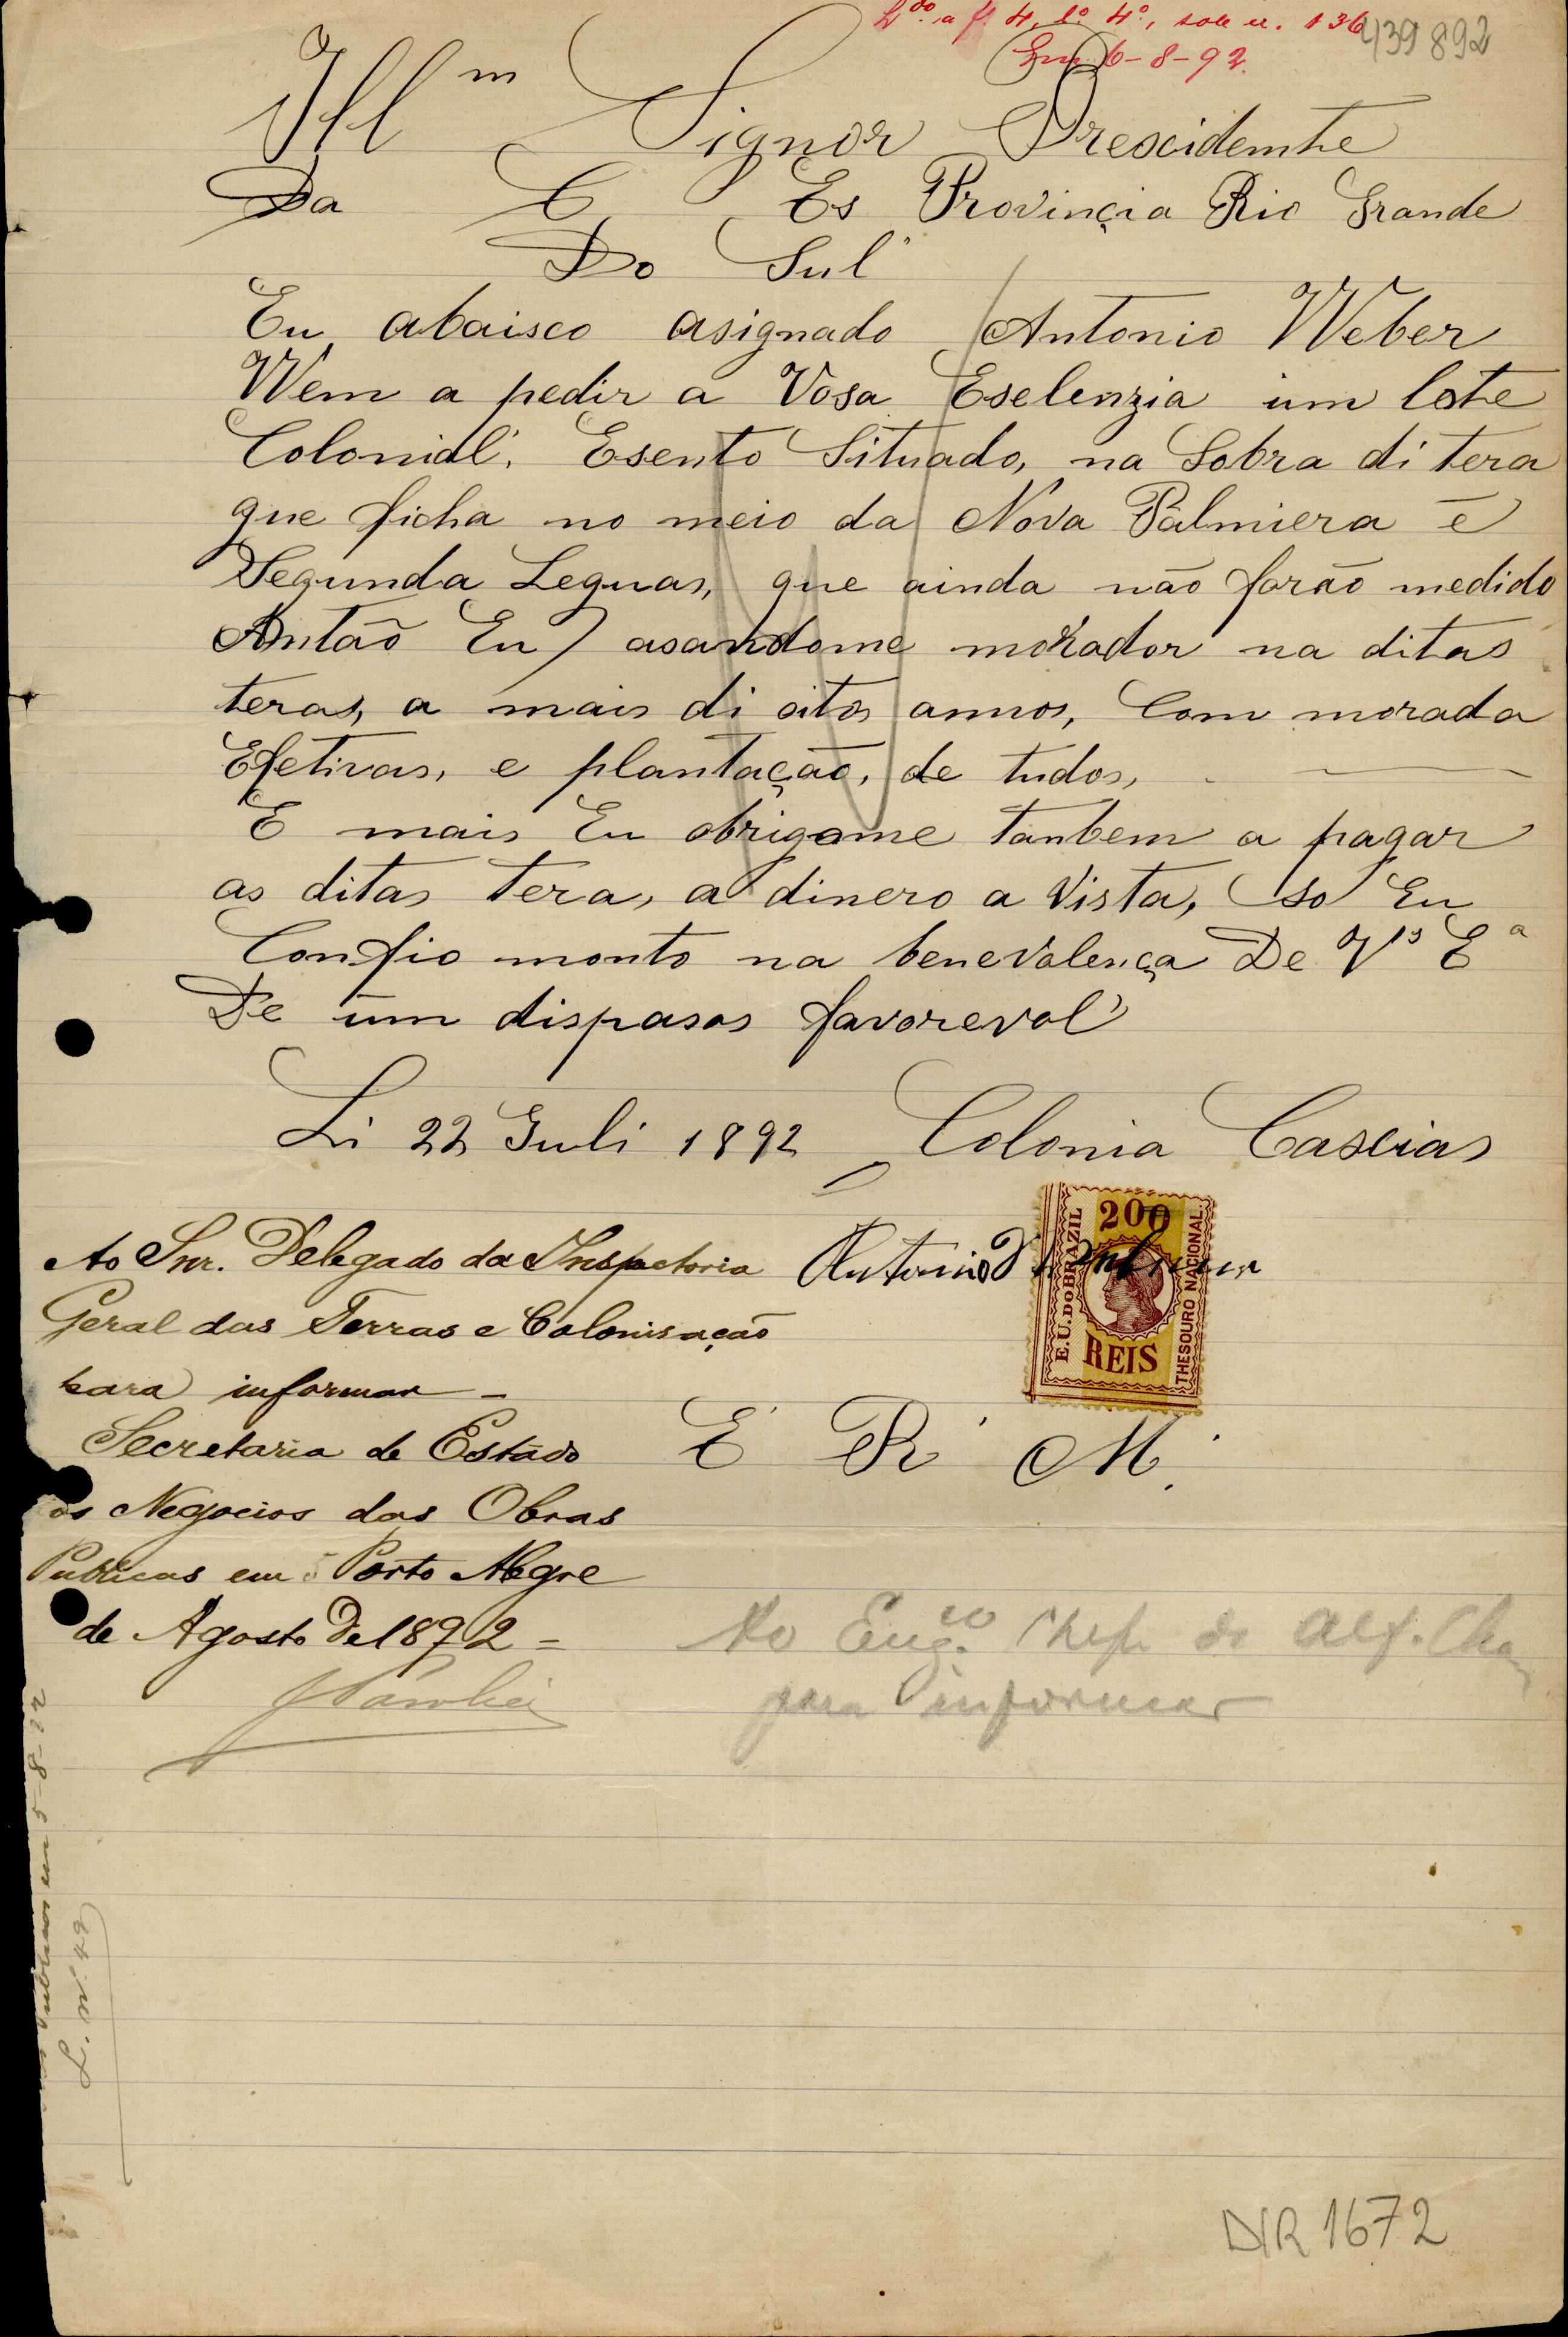 L.do a f. 4, l.o 4.o, sob n. 136
Em 6-8-92.
439 892
Ill m Signor Prescidemte
Da C Es Provinçia Rio Grande
Do Sul
Eu abaisco asignado Antonio Weber
Wem a pedir a Vosa Eselenzia um lote
Colonial. Esento Situado, na Sobra di tera
que ficha no meio da Nova Palmiera e
Segunda Leguas, que ainda não forão medido
Antão Eu asandome morador na ditas
teras, a mais di oitos annos, Com morada
Efetivas, e plantação, de tudos,
E mais Eu obrigome tanbem a pagar
as ditas tera, a dinero a Vista, So Eu
Confio monto na benevalença De Vs Ea
De um dispasos favorevol
Li 22 Juli 1892 Colonia Cascias
Antonio
200
E.U.DO BRAZIL
THESOURO NACIONAL
REIS
E R M.
Ao Snr. Delegado da Inspectoria
Geral das Terras e Colonisação
para informar -
Secretaria de Estado
os Negocios das Obras
Publicas em Porto Alegre
de Agosto de 1892 =
Ao Eng.ro Chefe
para informar
5-8-92
DIR 1672